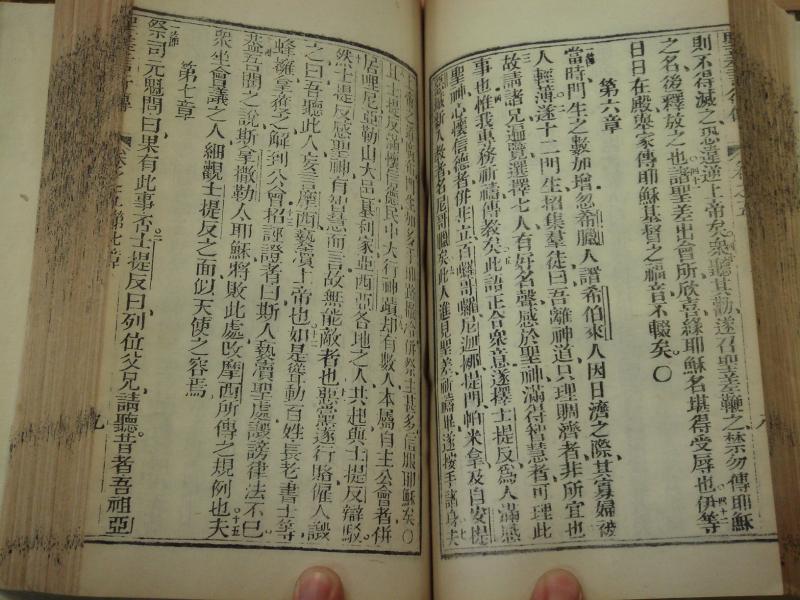 則不得滅之恐並逆上帝矣衆聽其勸遂召聖差鞭之禁勿傳耶穌
之名後釋放之也諸聖差出會所欣喜緣耶穌名堪得受辱也伊等
日日在殿與家傳耶穌基督之福音不輟矣○
第六章
當時門生之數加增忽希臘人譖希伯來人因日濟之際其寡婦被
人輕薄遂十二門生招集羣徒曰吾離神道只理賙濟者非所宜也
故請諸兄迦覽選擇七人有好名聲感於聖神滿得智慧者可理此
事也惟我專務祈禱傳教矣此語正合衆意遂擇士提反為人滿感
聖神心懷信德者併非立百囉哥囉尼迦挪提門帕米拿及自安提
且士提反滿懷信德民中大行神蹟却有數人本屬自主公會者併
居哩尼亞勒山大邑基利家亞西亞各地之人共起與士提反辯駁
然士提反感聖神有智慧而言故無能敵者也惡黨遂行賂僱人譤
之曰吾聽此人妄言摩西褻瀆上帝也如是聳動百姓長老書士等
蜂擁拿發之解到公會招誣證者曰斯人褻瀆聖處譭謗律法不已
蓋吾聞之說斯拿撒勒太耶穌將敗此處改摩西所傳之規例也夫
衆坐會議之人細觀士提反之面似天使之容焉
第七章
祭司元魁問曰果有此事否士提反曰列位父兄請聽昔者吾祖亞